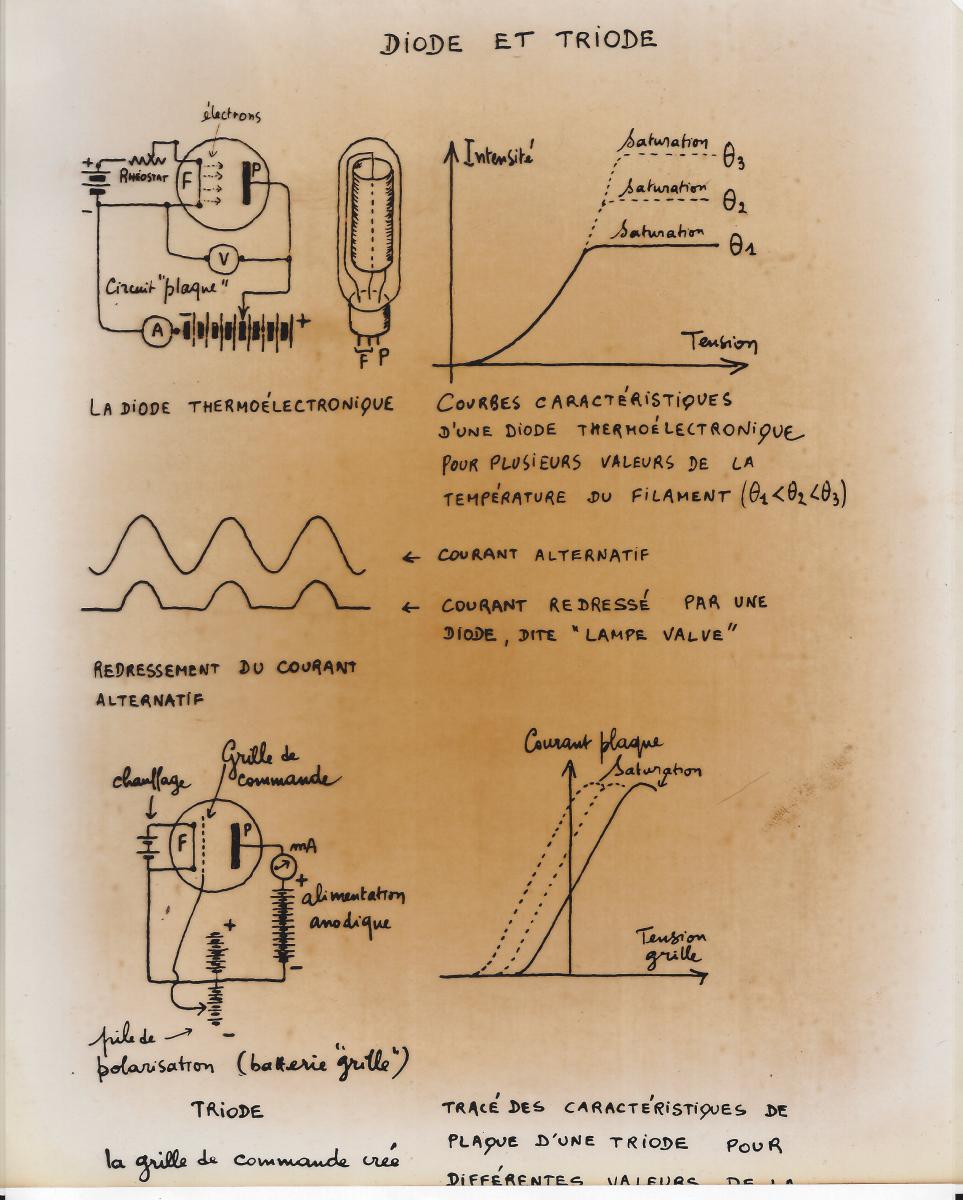 DIODE ET TRIODE
électrons
+
RHÉOSTAT
F
P
-
V
Circuit "plaque"
A
-
+
F P
Intensité
Saturation θ3
Saturation θ2
Saturation θ1
Tension
LA DIODE THERMOÉLECTRONIQUE
COURBES CARACTÉRISTIQUES
D'UNE DIODE THERMOÉLECTRONIQUE
POUR PLUSIEURS VALEURS DE LA
TEMPÉRATURE DU FILAMENT (θ1<θ2<θ3)
← COURANT ALTERNATIF
← COURANT REDRESSÉ PAR UNE
DIODE, DITE "LAMPE VALVE"
REDRESSEMENT DU COURANT
ALTERNATIF
Grille de
commande
chauffage
F
P
mA
+
alimentation
anodique
-
+
-
pile de
polarisation (batterie "grille")
Courant plaque
Saturation
Tension
grille
TRIODE
la grille de commande créé
TRACÉ DES CARACTÉRISTIQUES DE
PLAQUE D'UNE TRIODE POUR
DIFFÉRENTES VALEURS DE LA